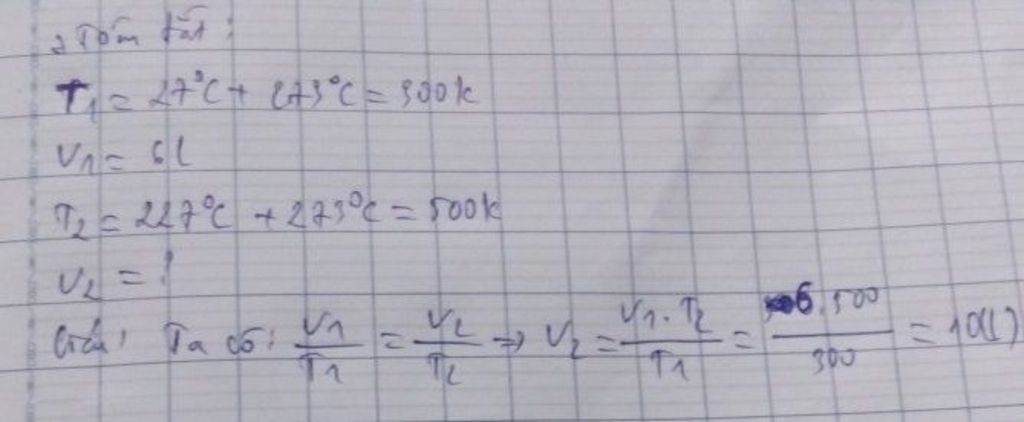 2 Tóm tắt:
T₁ = 27°C + 273°C = 300k
V₁ = 6l
T₂ = 227°C + 273°C = 500k
V₂ = ?
Giải: Ta có: V₁/T₁ = V₂/T₂ → V₂ = V₁.T₂/T₁ = 6.500/300 = 10(l)